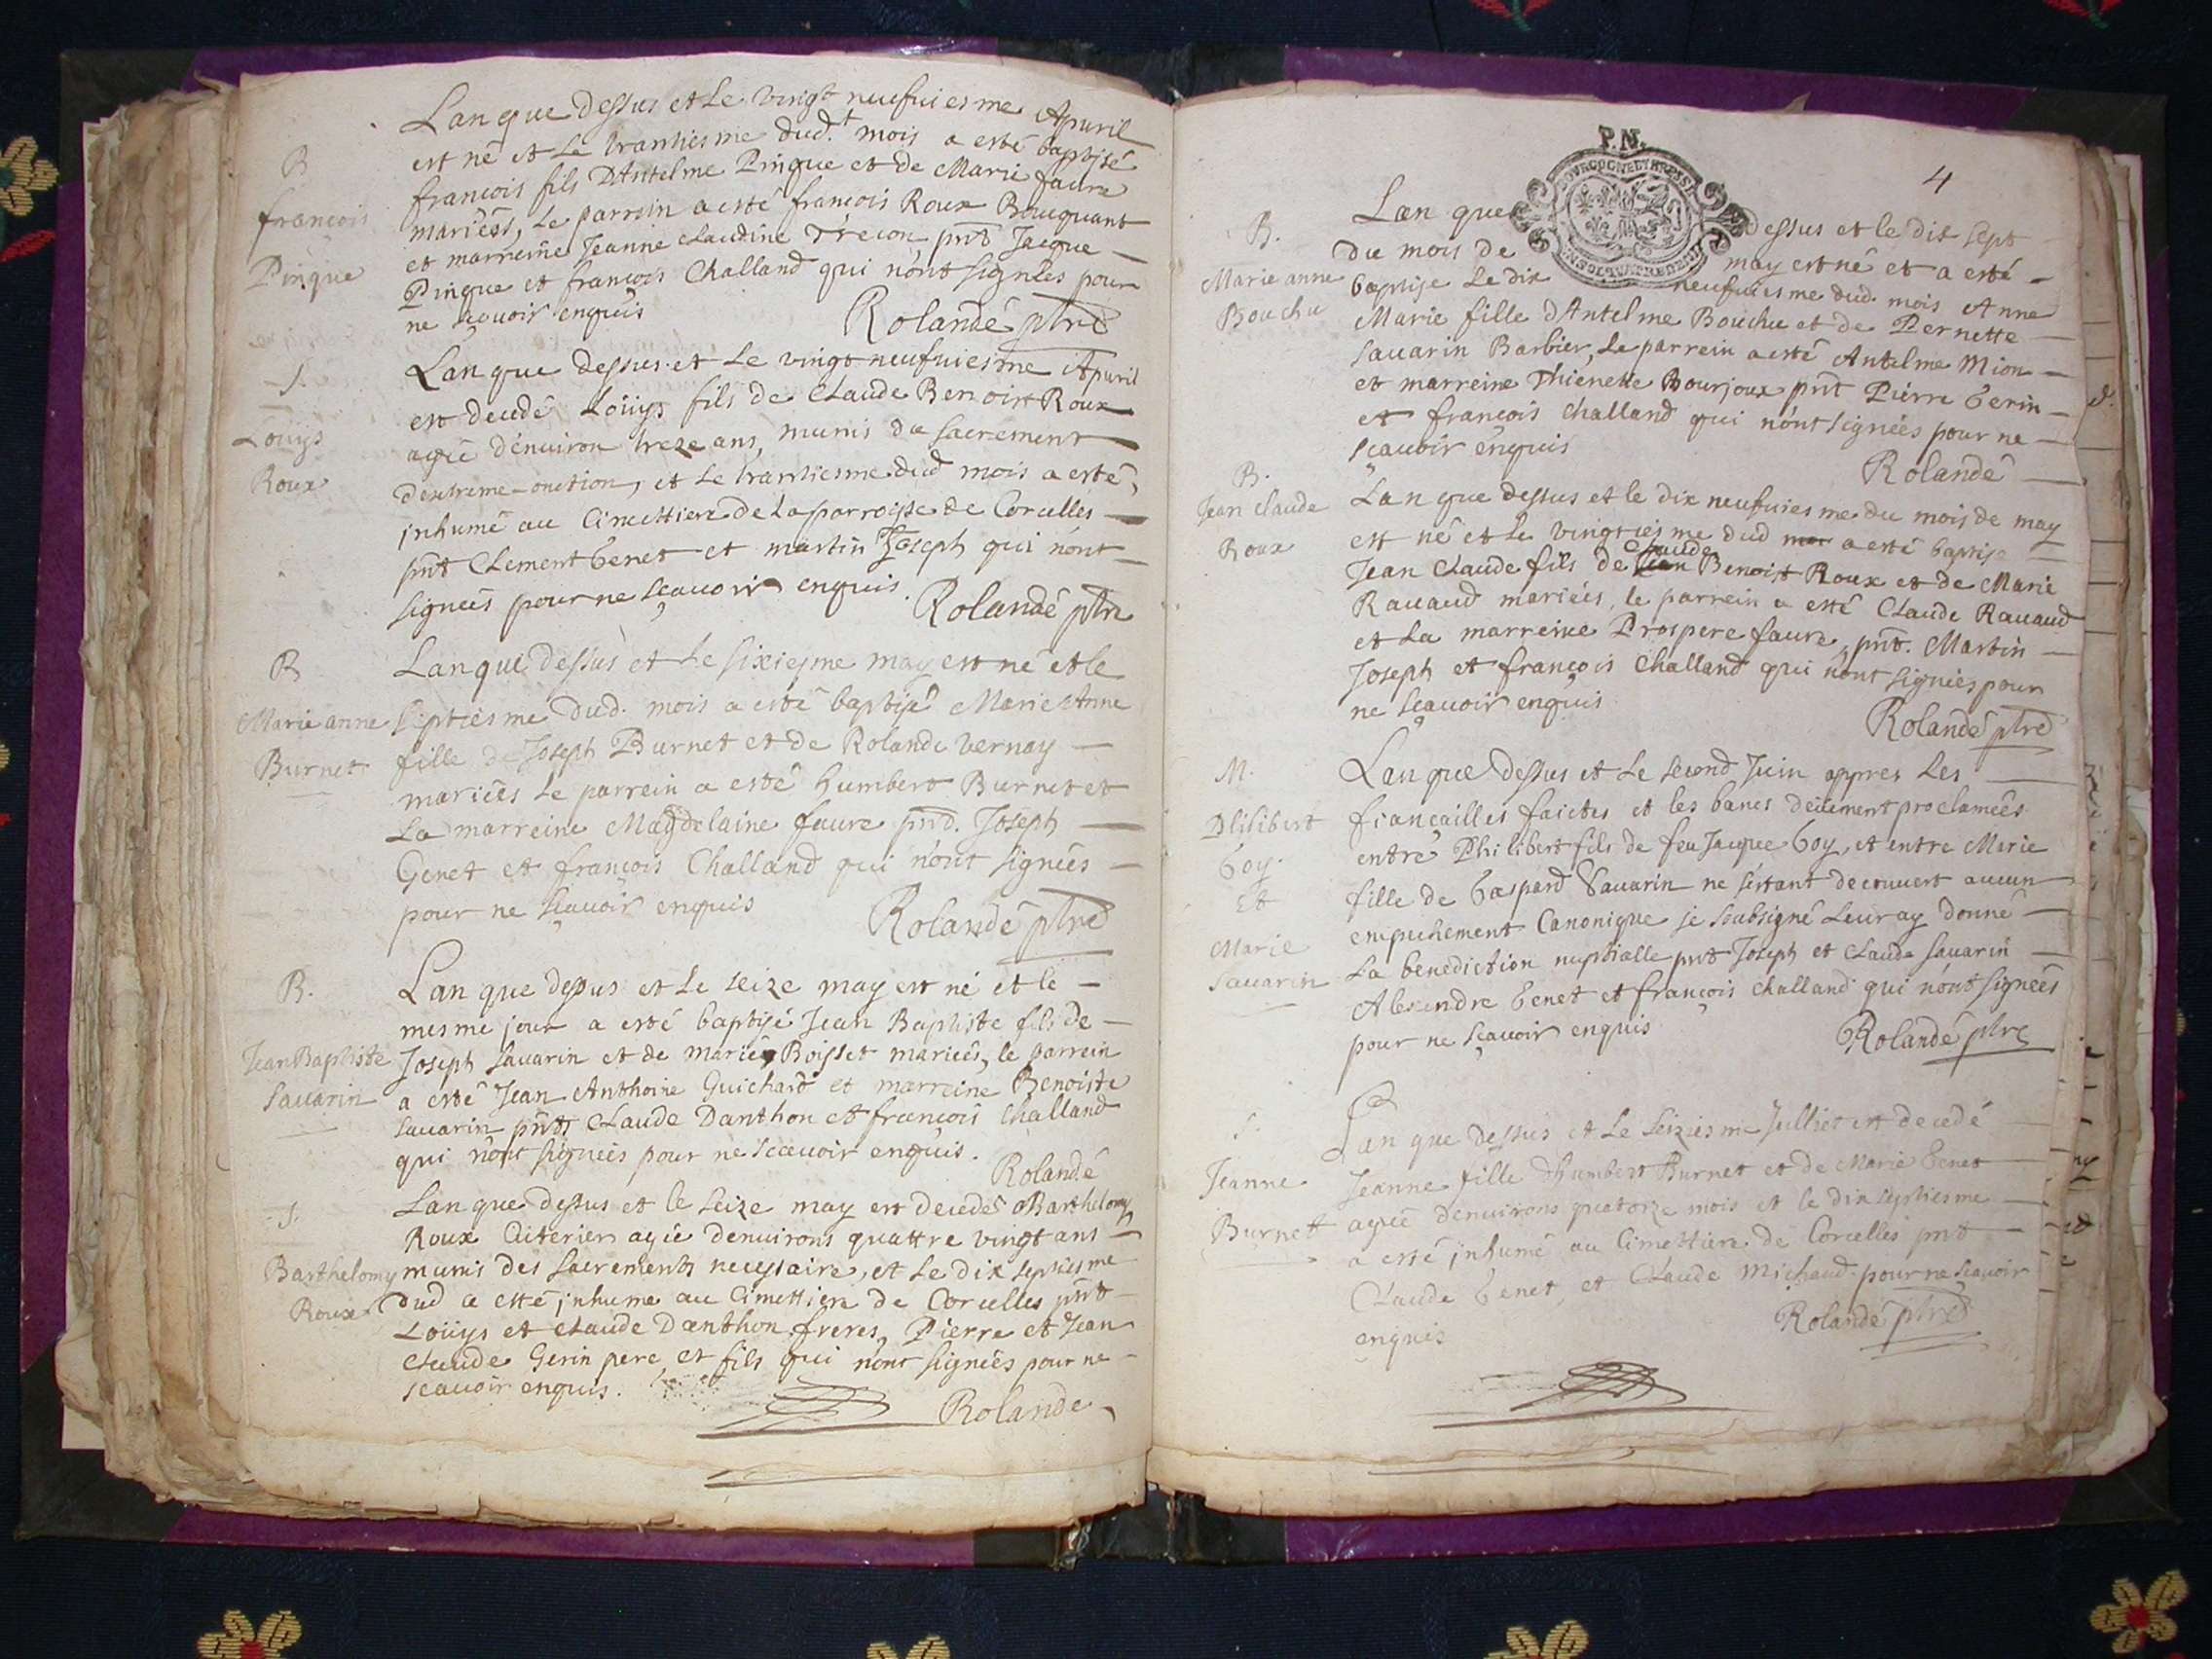 Lan que dessus et Le vingt neufuiesme Apuril
B
est né et Le trantiesme dud.t mois a esté baptisé
francois
francois fils DAntelme Pinque et de Marie faure
mariées, Le parrein a esté francois Roux Bouquant
Pinque
et marreine Jeanne Claudine Trecon pnt Jacque
Pinque et francois Challand qui n'ont signées pour
ne sçauoir enquis
Rolande ptre
S.
Lan que dessus et Le vingt neufuiesme Apuril
Loüys
est decedé Loüys fils de Claude Benoist Roux
Roux
agée d'enuiron treze ans, munis du sacrement
dextreme-onction, et Le trantiesme dud mois a esté,
jnhumé au Cimettiere de La parroisse de Corcelles
pnt Clement Genet et martin Joseph qui n'ont
signeés pour ne sçauoir enquis.
Rolandé ptre
B
Lan que dessus et Le sixiesme may est né et le
Marie anne
septiesme dud. mois a esté baptisé Marie Anne
Burnet
fille de Joseph Burnet et de Rolande vernay
mariées Le parrein a esté humbert Burnet et
La marreine Magdelaine faure pnd. Joseph
Genet et francois Challand qui n'ont signées
pour ne sçauoir enquis
Rolandé ptre
B.
Lan que dessus et Le seize may est né et le
mesme jour a esté baptisé Jean Baptiste fils de
Jean Baptiste
Joseph Sauarin et de mariée Boisset marieés, le parrein
Sauarin
a esté Jean Anthoine Guichard et marreine Benoiste
Sauarin pnts Claude Danthon et francois Challand
qui n'ont signeés pour ne sceauoir enquis.
Rolandé
S.
Lan que dessus et le seize may est decedé Barthelomy
Roux Citerier agée denuirons quattre vingt ans
Barthelomy
munis des sacrements necessaire, et Le dix septiesme
Roux
dud a esté jnhume au Cimettiere de Corcelles pnt
Loüys et Claude Danthon freres, Pierre et Jean
Claude Gerin pere et fils qui n'ont signeés pour ne
sçauoir enquis.
Rolande
P.N.
4
Lan que dessus et le dix sept
B.
du mois de may est né et a esté
Marie anne
baptise Le dix neufuiesme dud. mois Anne
Bouchu
Marie fille dAntelme Bouchu et de Pernette
Sauarin Barbier, Le parrein a esté Antelme Mion
et marreine Thienette Bourjoux pnt Pierre Gerin
et françois Challand qui n'ont signeés pour ne
sçauoir enquis
Rolandé
B.
Jean Claude
Lan que dessus et le dix neufuiesme du mois de may
Roux
est né et Le vingtiesme dud a esté baptisé
Claude
Jean Claude fils de Benoist Roux et de Marie
Rauaud marieés, le parrein a esté Claude Rauaud
et La marreine Prospere faure, pnt. Martin
Joseph et françois Challand qui n'ont signeés pour
ne sçauoir enquis
Rolandé ptre
M.
Lan que dessus et Le second Juin appres Les
Philibert
fiançailles faictes et les bancs deüement proclamées
Goy.
entre Philibert fils de feu Jacque Goy, et entre Marie
Et
fille de Gaspard Sauarin ne sestant decouuert aucun
Marie
empechement Canonique je soubsigné Leur ay donné
Sauarin
La benediction nuptialle pnt Joseph et Claude Sauarin
Alexandre Genet et françois challand qui n'ont signeés
pour ne sçauoir enquis
Rolandé ptre
S.
Lan que dessus et Le seiziesme Julliet est decedé
Jeanne
Jeanne fille dhumbert Burnet et de Marie Genet
Burnet
ageé denuirons quatorze mois et le dix septiesme
a esté jnhumé au Cimettiere de Corcelles pnt
Claude Genet, et Claude Michaud pour ne sçauoir
enquis
Rolandé ptre